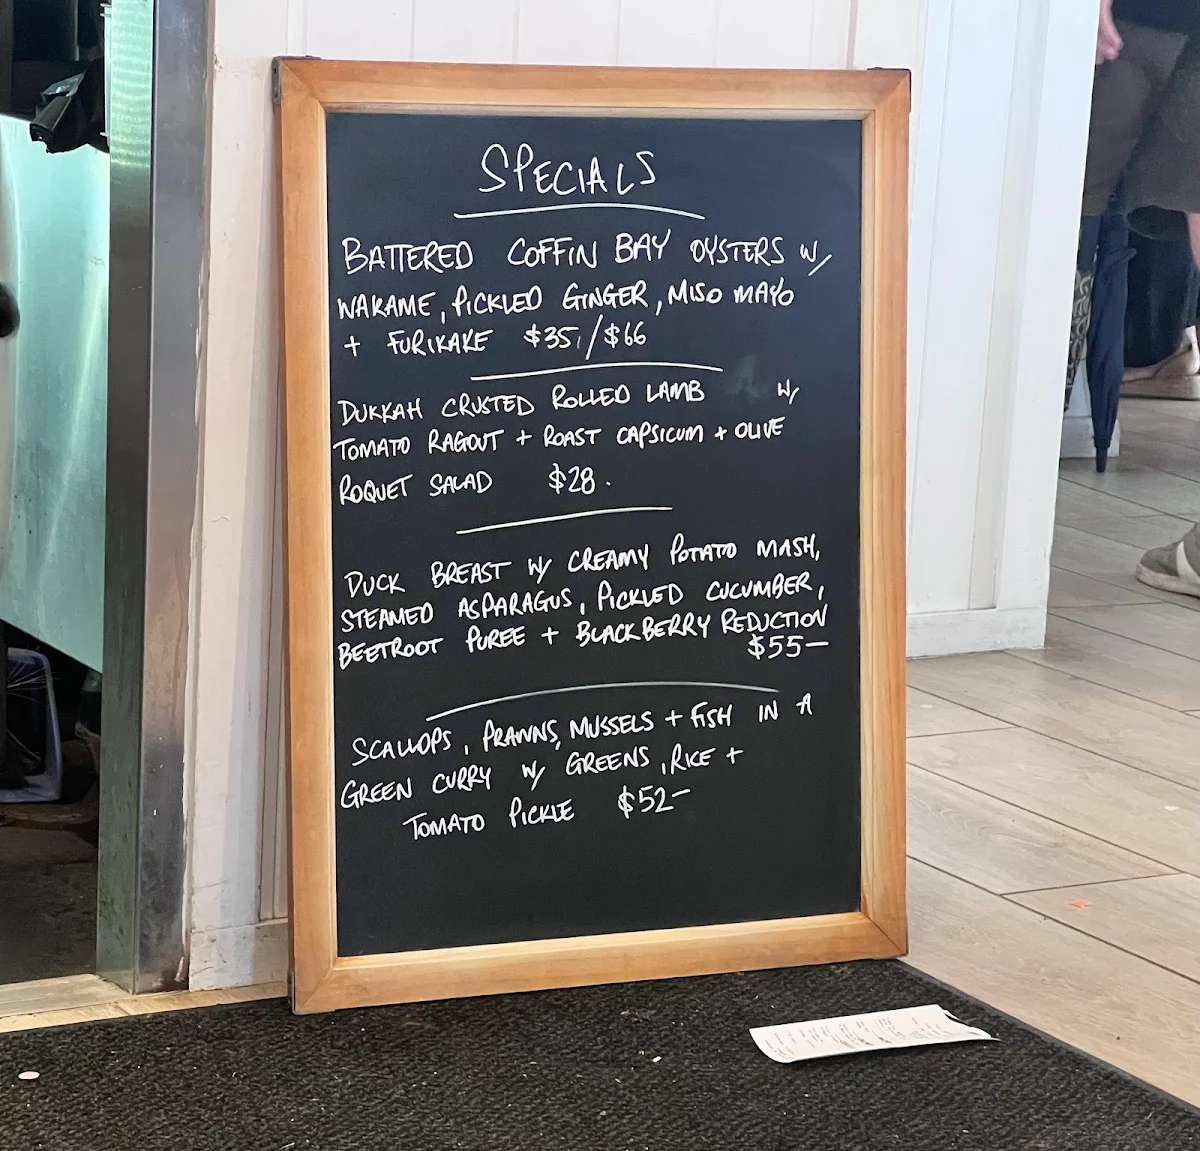 SPECIALS
BATTERED COFFIN BAY OYSTERS W/
WAKAME, PICKLED GINGER, MISO MAYO
+ FURIKAKE $35/$66
DUKKAH CRUSTED ROLLED LAMB W/
TOMATO RAGOUT + ROAST CAPSICUM + OLIVE
ROQUET SALAD $28.
DUCK BREAST W/ CREAMY POTATO MASH,
STEAMED ASPARAGUS, PICKLED CUCUMBER,
BEETROOT PUREE + BLACKBERRY REDUCTION
$55-
SCALLOPS, PRAWNS, MUSSELS + FISH IN A
GREEN CURRY W/ GREENS, RICE +
TOMATO PICKLE $52-